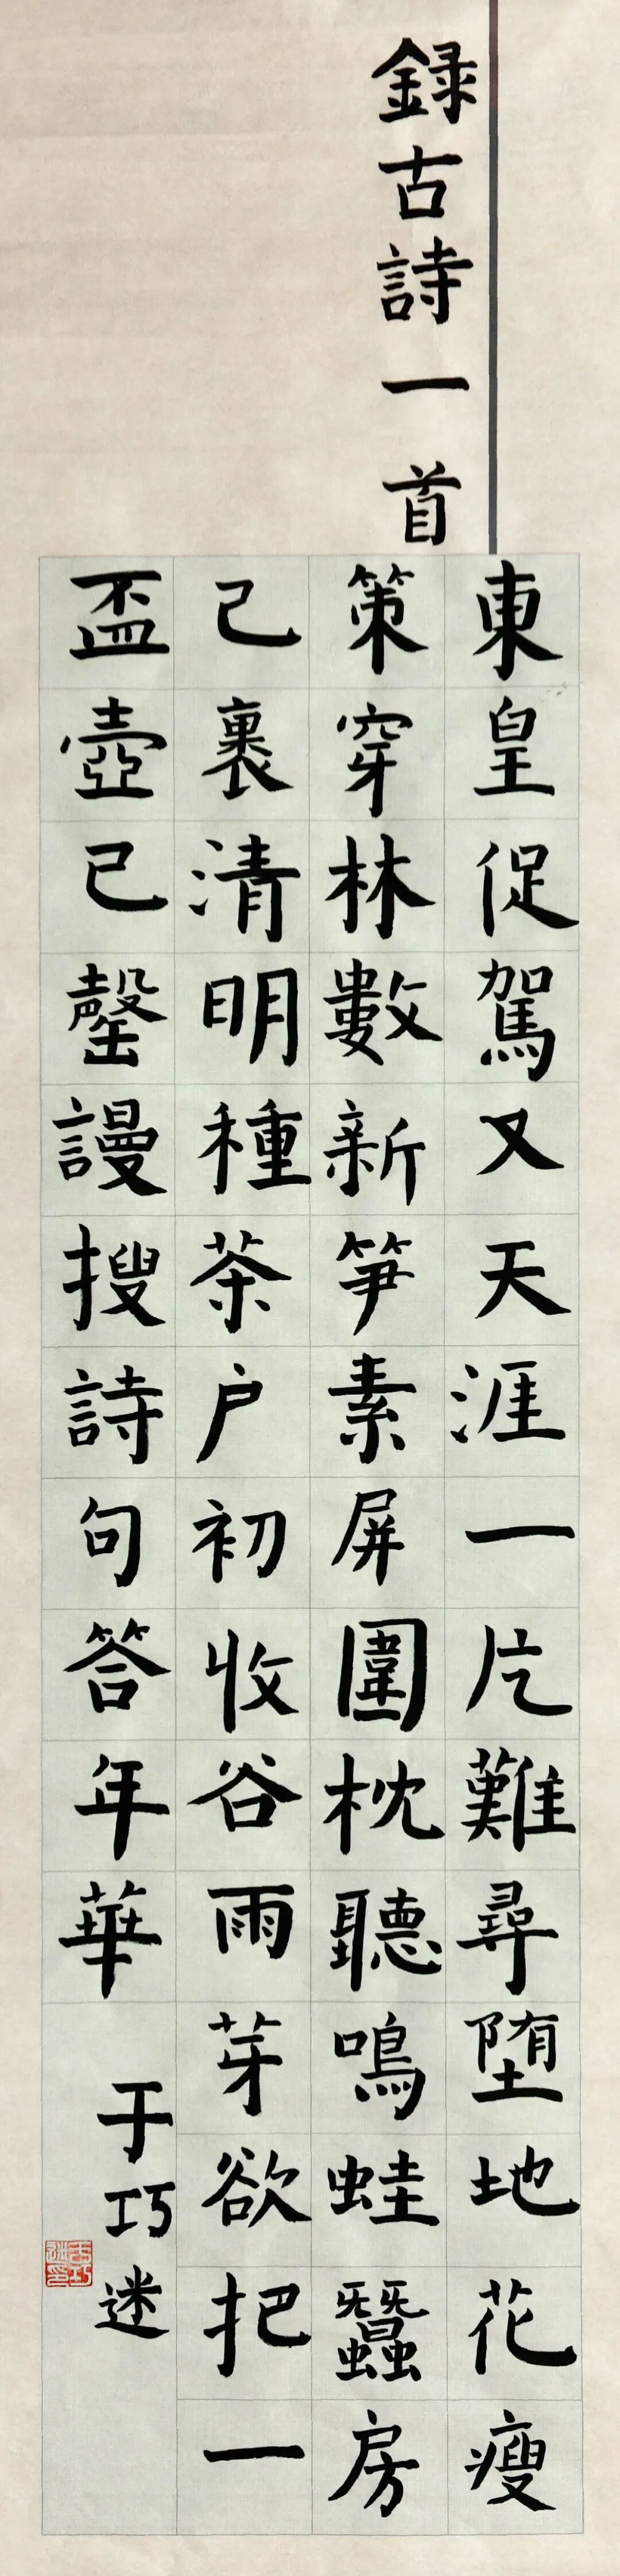 録古詩一首
東皇促駕又天涯一片難尋堕地花瘦
策穿林數新笋素屏圍枕聽鳴蛙蠶房
已裹清明種茶户初收谷雨芽欲把一
盃壺已罄謾搜詩句答年華
于巧迷